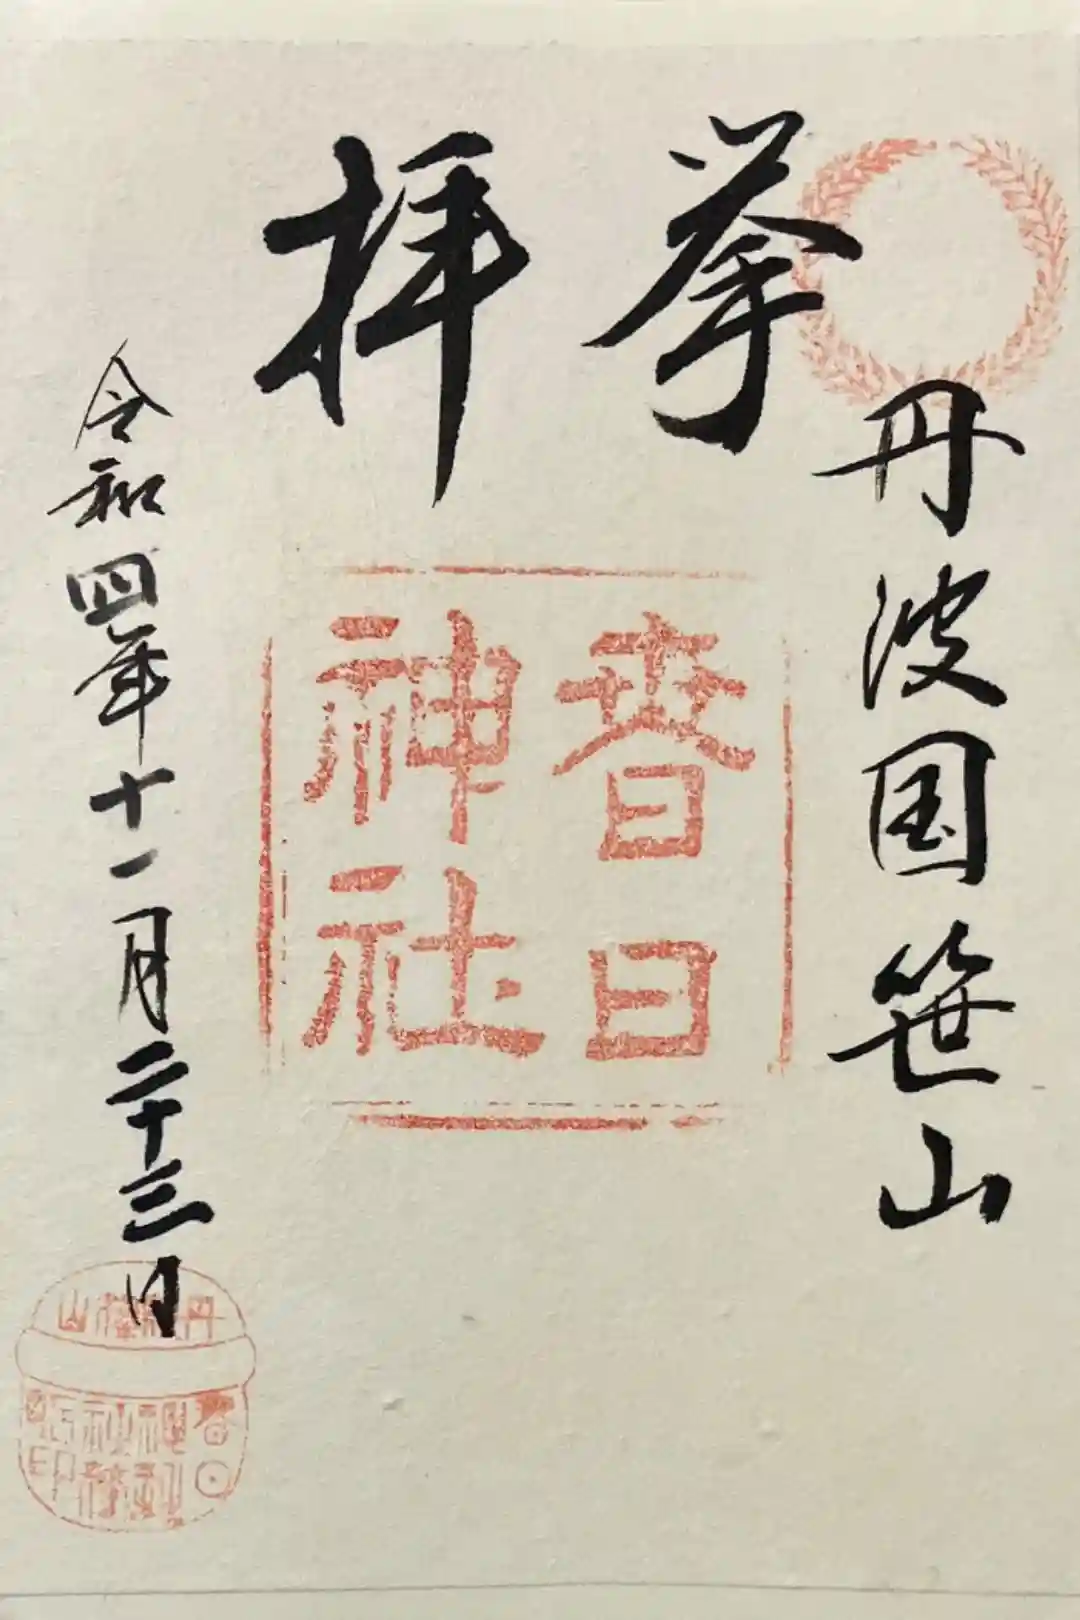 丹波国笹山
奉拝
春日
神社
令和四年十一月二十三日
春日